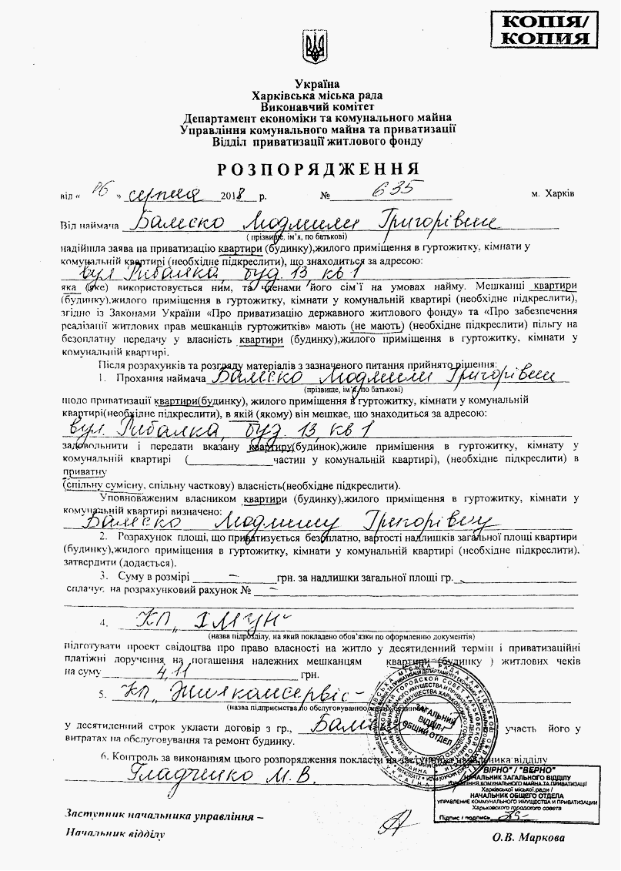 КОПІЯ/
КОПИЯ
Україна
Харківська міська рада
Виконавчий комітет
Департамент економіки та комунального майна
Управління комунального майна та приватизації
Відділ приватизації житлового фонду
РОЗПОРЯДЖЕННЯ
від « 06 » серпня 2018 р. № 635 м. Харків
Від наймача Григорівни
( прізвище, ім'я, по батькові)
надійшла заява на приватизацію квартири (будинку),жилого приміщення в гуртожитку, кімнати у
комунальній квартирі (необхідне підкреслити), що знаходиться за адресою:
вул Рибалка, буд. 13 кв 1
яка (яке) використовується ним, та членами його сім'ї на умовах найму. Мешканці квартири
(будинку),жилого приміщення в гуртожитку, кімнати у комунальній квартирі (необхідне підкреслити),
згідно із Законами України «Про приватизацію державного житлового фонду» та «Про забезпечення
реалізації житлових прав мешканців гуртожитків» мають (не мають) (необхідне підкреслити) пільгу на
безоплатну передачу у власність квартири (будинку),жилого приміщення в гуртожитку, кімнати у
комунальній квартирі.
Після розрахунків та розгляду матеріалів з зазначеного питання прийнято рішення:
1. Прохання наймача Григорівни
(прізвище, ім'я, по батькові)
щодо приватизації квартири(будинку), жилого приміщення в гуртожитку, кімнати у комунальній
квартирі(необхідне підкреслити), в якій (якому) він мешкає, що знаходиться за адресою:
вул. Рибалка, буд. 13, кв 1
задовольнити і передати вказану квартиру(будинок),жиле приміщення в гуртожитку, кімнату у
комунальній квартирі ( частин у комунальній квартирі), (необхідне підкреслити) в
приватну
(спільну сумісну, спільну часткову) власність(необхідне підкреслити).
Уповноваженим власником квартири (будинку),жилого приміщення в гуртожитку, кімнати у
комунальній квартирі визначено:
Людмилу Григорівну
2. Розрахунок площі, що приватизується безоплатно, вартості надлишків загальної площі квартири
(будинку),жилого приміщення в гуртожитку, кімнати у комунальній квартирі (необхідне підкреслити).
затвердити (додається).
3. Суму в розмірі – грн. за надлишки загальної площі гр. –
сплачує на розрахунковий рахунок № –
4. КП „ХМУН"
(назва підрозділу, на який покладено обов'язки по оформленню документів)
підготувати проект свідоцтва про право власності на житло у десятиденний термін і приватизаційні
платіжні доручення на погашення належних мешканцям квартири (будинку ) житлових чеків
на суму 4,11 грн.
5. КП „Жилкомсервіс"
(назва підприємства по обслуговуванню
у десятиденний строк укласти договір з гр., участь його у
витратах на обслуговування та ремонт будинку.
6. Контроль за виконанням цього розпорядження покласти на заступника начальника відділу
Гладченко М. В.
ЗАГАЛЬНИЙ
ВІДДІЛ
ОБЩИЙ ОТДЕЛ
"ВІРНО" / "ВЕРНО"
НАЧАЛЬНИК ЗАГАЛЬНОГО ВІДДІЛУ
УПРАВЛІННЯ КОМУНАЛЬНОГО МАЙНА ТА ПРИВАТИЗАЦІЇ
Харківської міської ради /
НАЧАЛЬНИК ОБЩЕГО ОТДЕЛА
УПРАВЛЕНИЕ КОММУНАЛЬНОГО ИМУЩЕСТВА И ПРИВАТИЗАЦИИ
Харьковского городского совета
Підпис / подпись
Заступник начальника управління –
Начальник відділу
О.В. Маркова